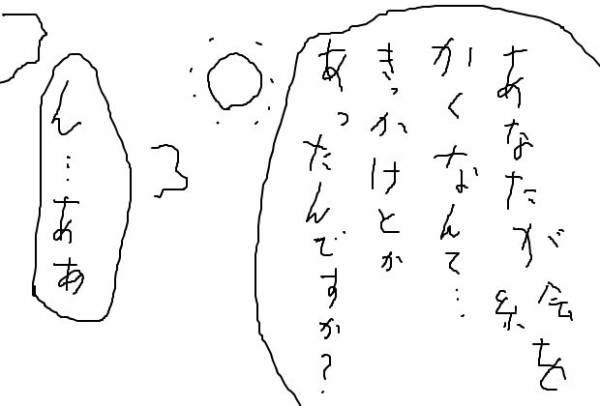 あなたが絵を
かくなんて…
きっかけとか
あったんですか?
ん…ああ